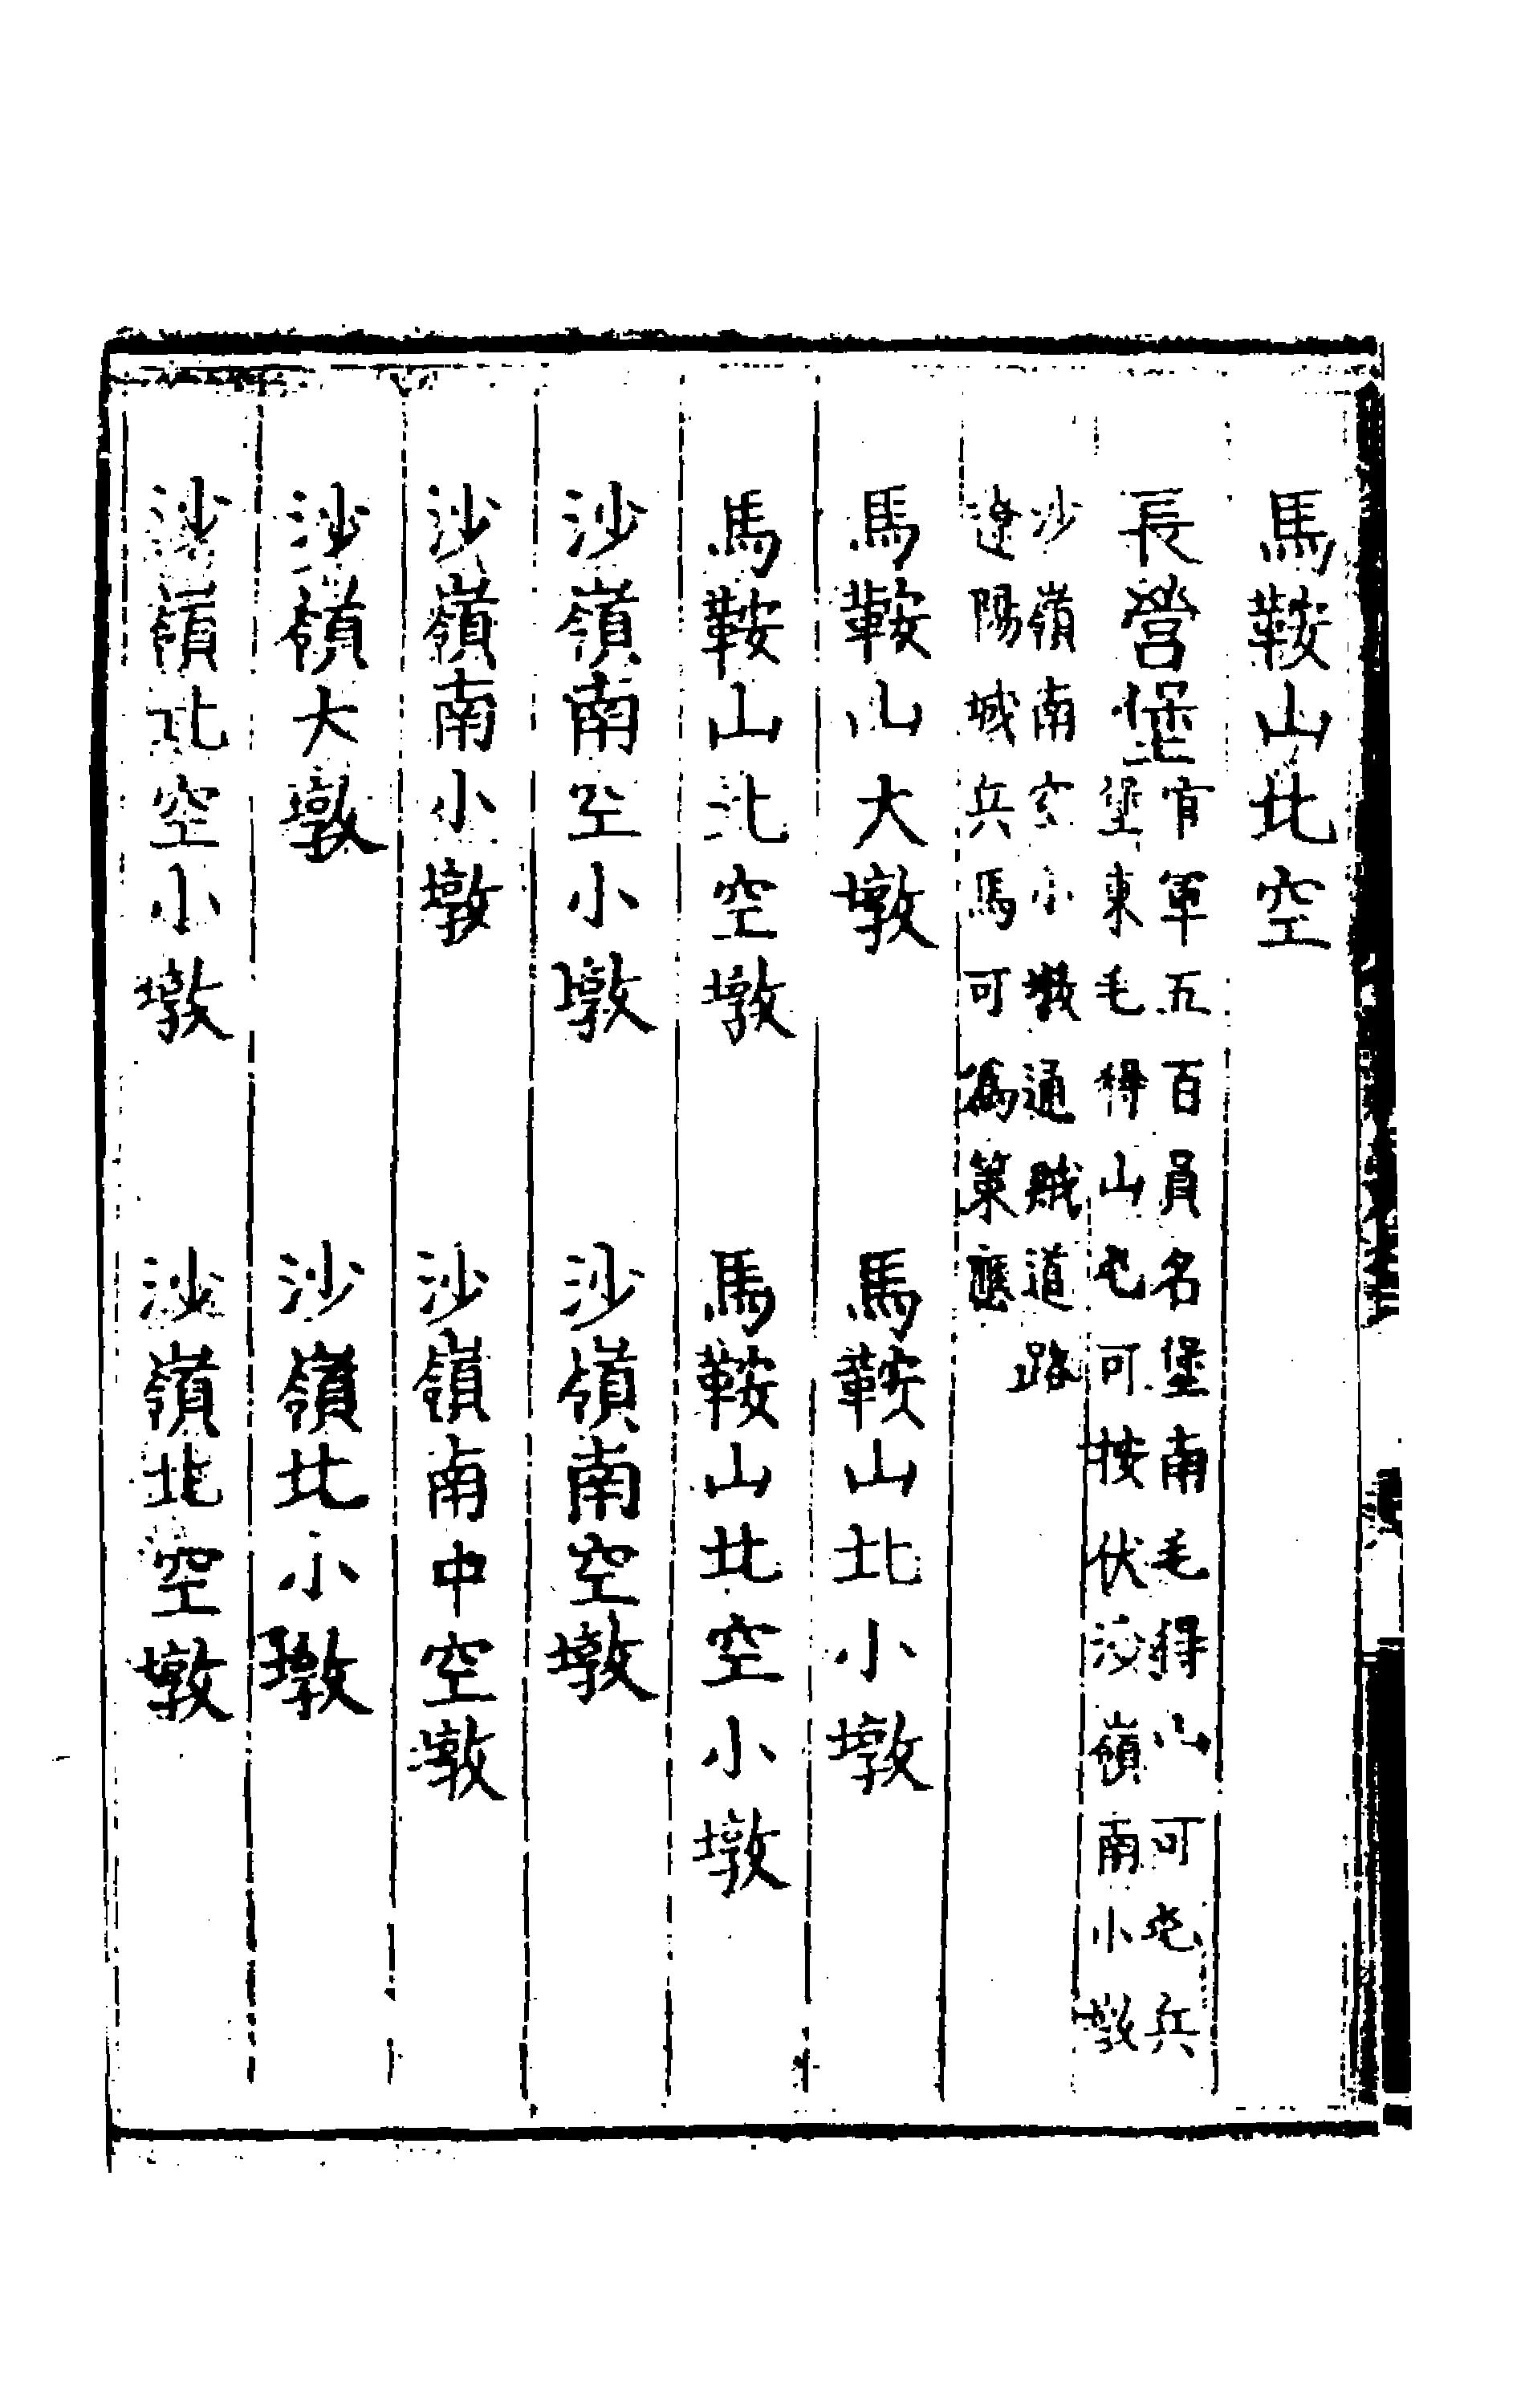 馬鞍山北空
長營堡官軍五百員名堡南毛得山可屯兵
堡東毛得山屯可按伏沙嶺南小墩
沙嶺南空小墩通賊道路
遼陽城兵馬可為策應
馬鞍山大墩　馬鞍山北小墩
馬鞍山北空墩　馬鞍山北空小墩
沙嶺南空小墩　沙嶺南空墩
沙嶺南小墩　沙嶺南中空墩
沙嶺大墩　沙嶺北小墩
沙嶺北空小墩　沙嶺北空墩